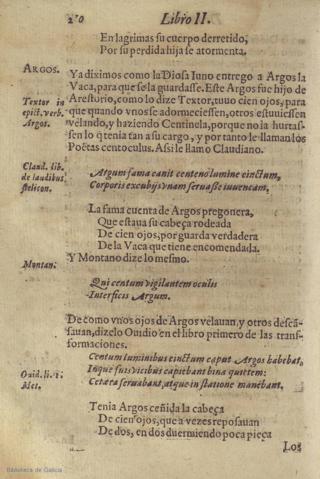 210 Libro II.
En lagrimas su cuerpo derretido,
Por su perdida hija se atormenta.
ARGOS. Ya diximos como la Diosa Iuno entrego a Argos la
Vaca, para que se la guardasse. Este Argos fue hijo de
Textor in Arestorio, como lo dize Textor, tuuo cien ojos, para
epict. verb. que quando vnos se adormeciessen, otros estuuiessen
Argos. velando, y haziendo Centinela, porque no la hurtas-
sen lo q̃ tenia tan a su cargo, y por tanto le llaman los
Poëtas centoculus. Assi le llamo Claudiano.
Claud. lib.
de laudibus
stelicon.
Argum fama canit centeno lumine cinctum,
Corporis excubijs vnam seruasse iuuencam,
La fama cuenta de Argos pregonera,
Que estaua su cabeça rodeada
De cien ojos, por guarda verdadera
De la Vaca que tiene encomendada.
Montan. Y Montano dize lo mesmo.
Qui centum vigilantem oculis
Interficis Argum.
De como vnos ojos de Argos velauan, y otros descã-
sauan, dizelo Ouidio en el libro primero de las trans-
formaciones.
Centum luminibus cinctum caput Argos habebat,
Ouid. li. 1. Inque suis vicibus capiebant bina quietem:
Met. Cetæra seruabant, atque in statione manêbant.
Tenia Argos ceñida la cabeça
De cien ojos, que a vezes reposauan
De dos, en dos durmiendo poca pieça
Los
Biblioteca de Galicia